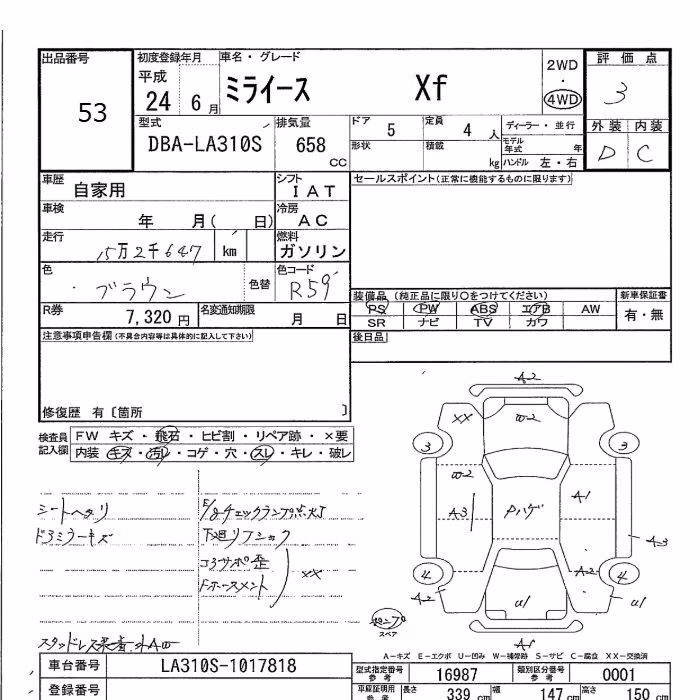 出品番号
53
初度登録年月
平成
24 6月
車名・グレード
ミライース Xf
2WD
・
4WD
評価点
3
型式
DBA-LA310S
排気量
658
CC
ドア
5
定員
4 人
ディーラー・並行
モデル年式 年
形状
積載 kg
ハンドル 左・右
外装 内装
D C
車歴
自家用
シフト
IAT
セールスポイント(正常に機能するものに限ります)
車検
年 月( 日)
冷房
AC
走行
15万2千647 km
燃料
ガソリン
色
ブラウン
色替
色コード
R59
装備品 (純正品に限り○をつけてください)
PS PW ABS エアB AW
SR ナビ TV カワ
新車保証書
有・無
R券
7,320 円
名変通知期限
月 日
注意事項申告欄(不具合内容等は具体的に記入して下さい)
後日品
修復歴 有〔箇所 〕
検査員記入欄
FW キズ・飛石・ヒビ割・リペア跡・×要
内装 キズ・汚レ・コゲ・穴・スレ・キレ・破レ
シートヘタリ
ドラミラーキズ
E/gチェックランプ点灯
下廻りフショク
コアサポ歪
Fホースメント
××
A2
××
W2
3
3
W2
A3
Pハゲ
A1
A3
4
A2
A2
4
U1
U1
スペア
A1
A-キズ E-エクボ U-凹み W-補修跡 S-サビ C-腐食 XX-交換済
車台番号
LA310S-1017818
登録番号
型式指定番号
参考
16987
類別区分番号
参考
0001
車庫証明用
参考
長さ
339 cm
幅
147 cm
高さ
150 cm